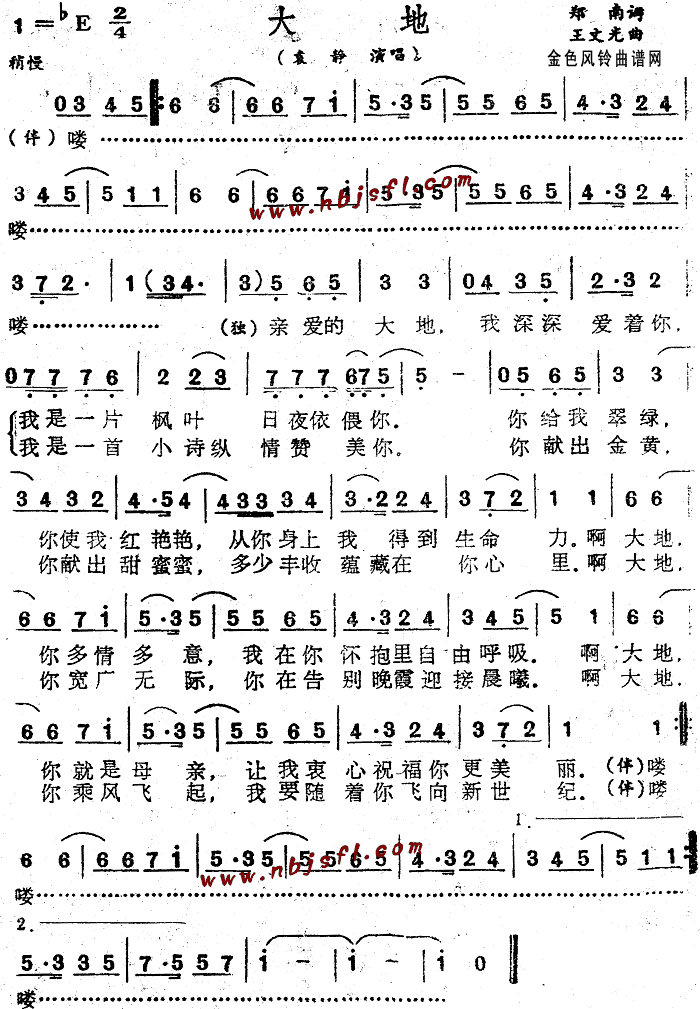 1=♭E 2/4
大 地
郑 南词
王文光曲
稍慢
(袁 静 演唱)
金色风铃曲谱网
03 45 6 6 667i 5·35 5565 4·324
(伴) 喽
345 511 6 6 667i 5·35 5565 4·324
www.nbjsfl.com
喽
372· 1(34· 3)565 3 3 04 35 2·32
喽 (独) 亲爱的 大地, 我深深 爱着你,
077 76 2 23 777 675 5 - 05 65 3 3
我是一片 枫叶 日夜依偎你. 你给我 翠绿,
我是一首 小诗纵 情赞 美你. 你献出 金黄,
3432 4·54 43334 3·224 372 1 1 6 6
你使我红艳艳, 从你身上我 得到生命 力.啊大地,
你献出甜蜜蜜, 多少丰收 蕴藏在 你心 里.啊大地,
667i 5·35 5565 4·324 345 5 1 6 6
你多情多意, 我在你怀抱里自由呼吸. 啊大地,
你宽广无际, 你在告别晚霞迎接晨曦. 啊大地,
667i 5·35 5565 4·324 372 1 1
你就是母亲, 让我衷心祝福你更美丽. (伴)喽
你乘风飞起, 我要随着你飞向新世纪. (伴)喽
1.
6 6 667i 5·35 5565 4·324 345 511
www.nbjsfl.com
喽
2.
5·335 7·557 i - i - i 0
喽